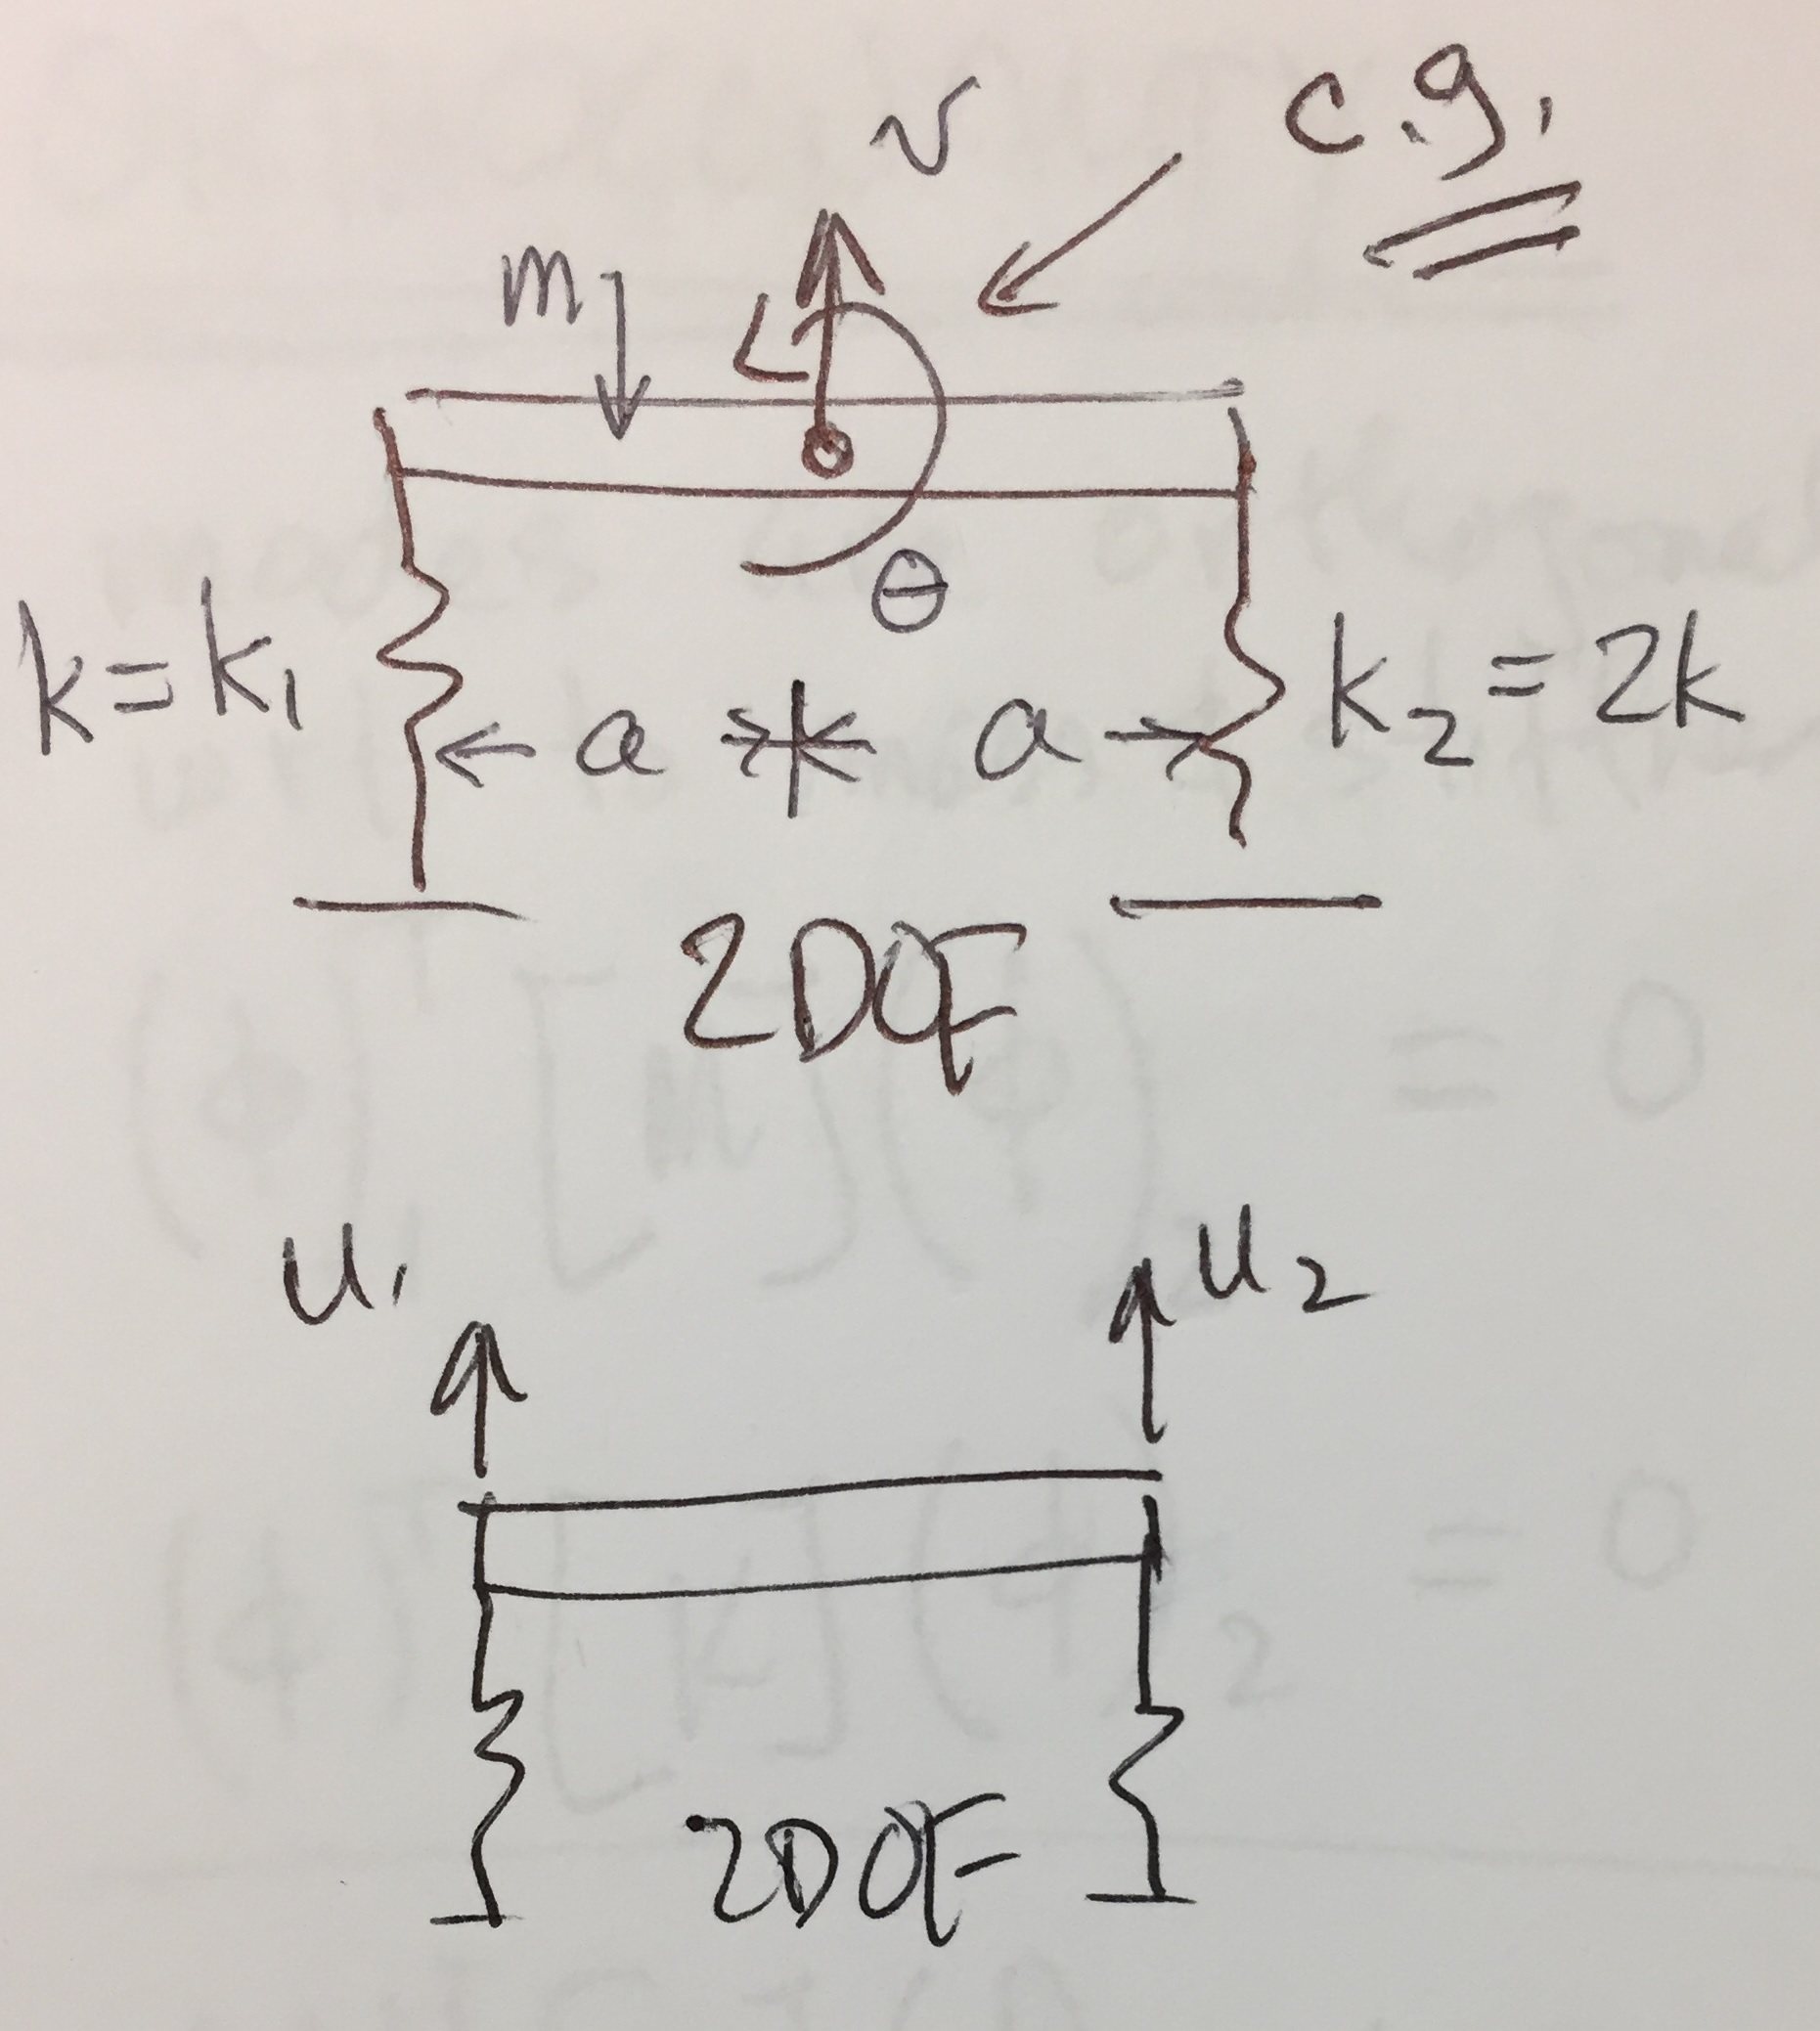 v
c.g.
m
θ
k = k1
a
a
k2 = 2k
2DOF
u1
u2
2DOF